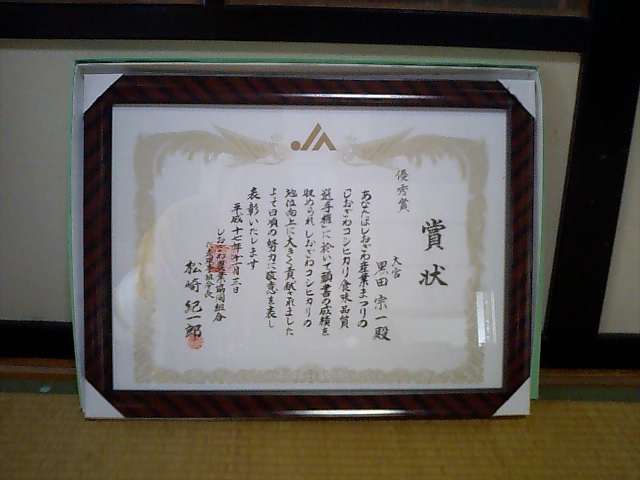 賞状
優秀賞
天宮
黒田宗一殿
あなたはしおざわ産業まつりの
「しおざわコシヒカリ食味品質
選手権」に於いて頭書の成績を
収められしおざわコシヒカリの
地位向上に大きく貢献されました
よって日頃の努力に敬意を表し
表彰いたします
平成十七年十一月三日
しおざわ農業協同組合
松崎紀一郎
JA